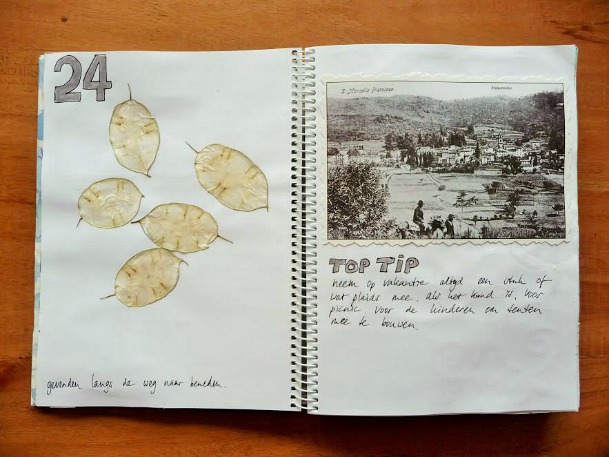 24
gevonden langs de weg naar beneden.
S. Marcello Pistoiese
Panorama
TOP TIP
neem op vakantie altijd een of
wat plaids mee, als het koud is, voor
picnic voor de kinderen om tenten
mee te bouwen.